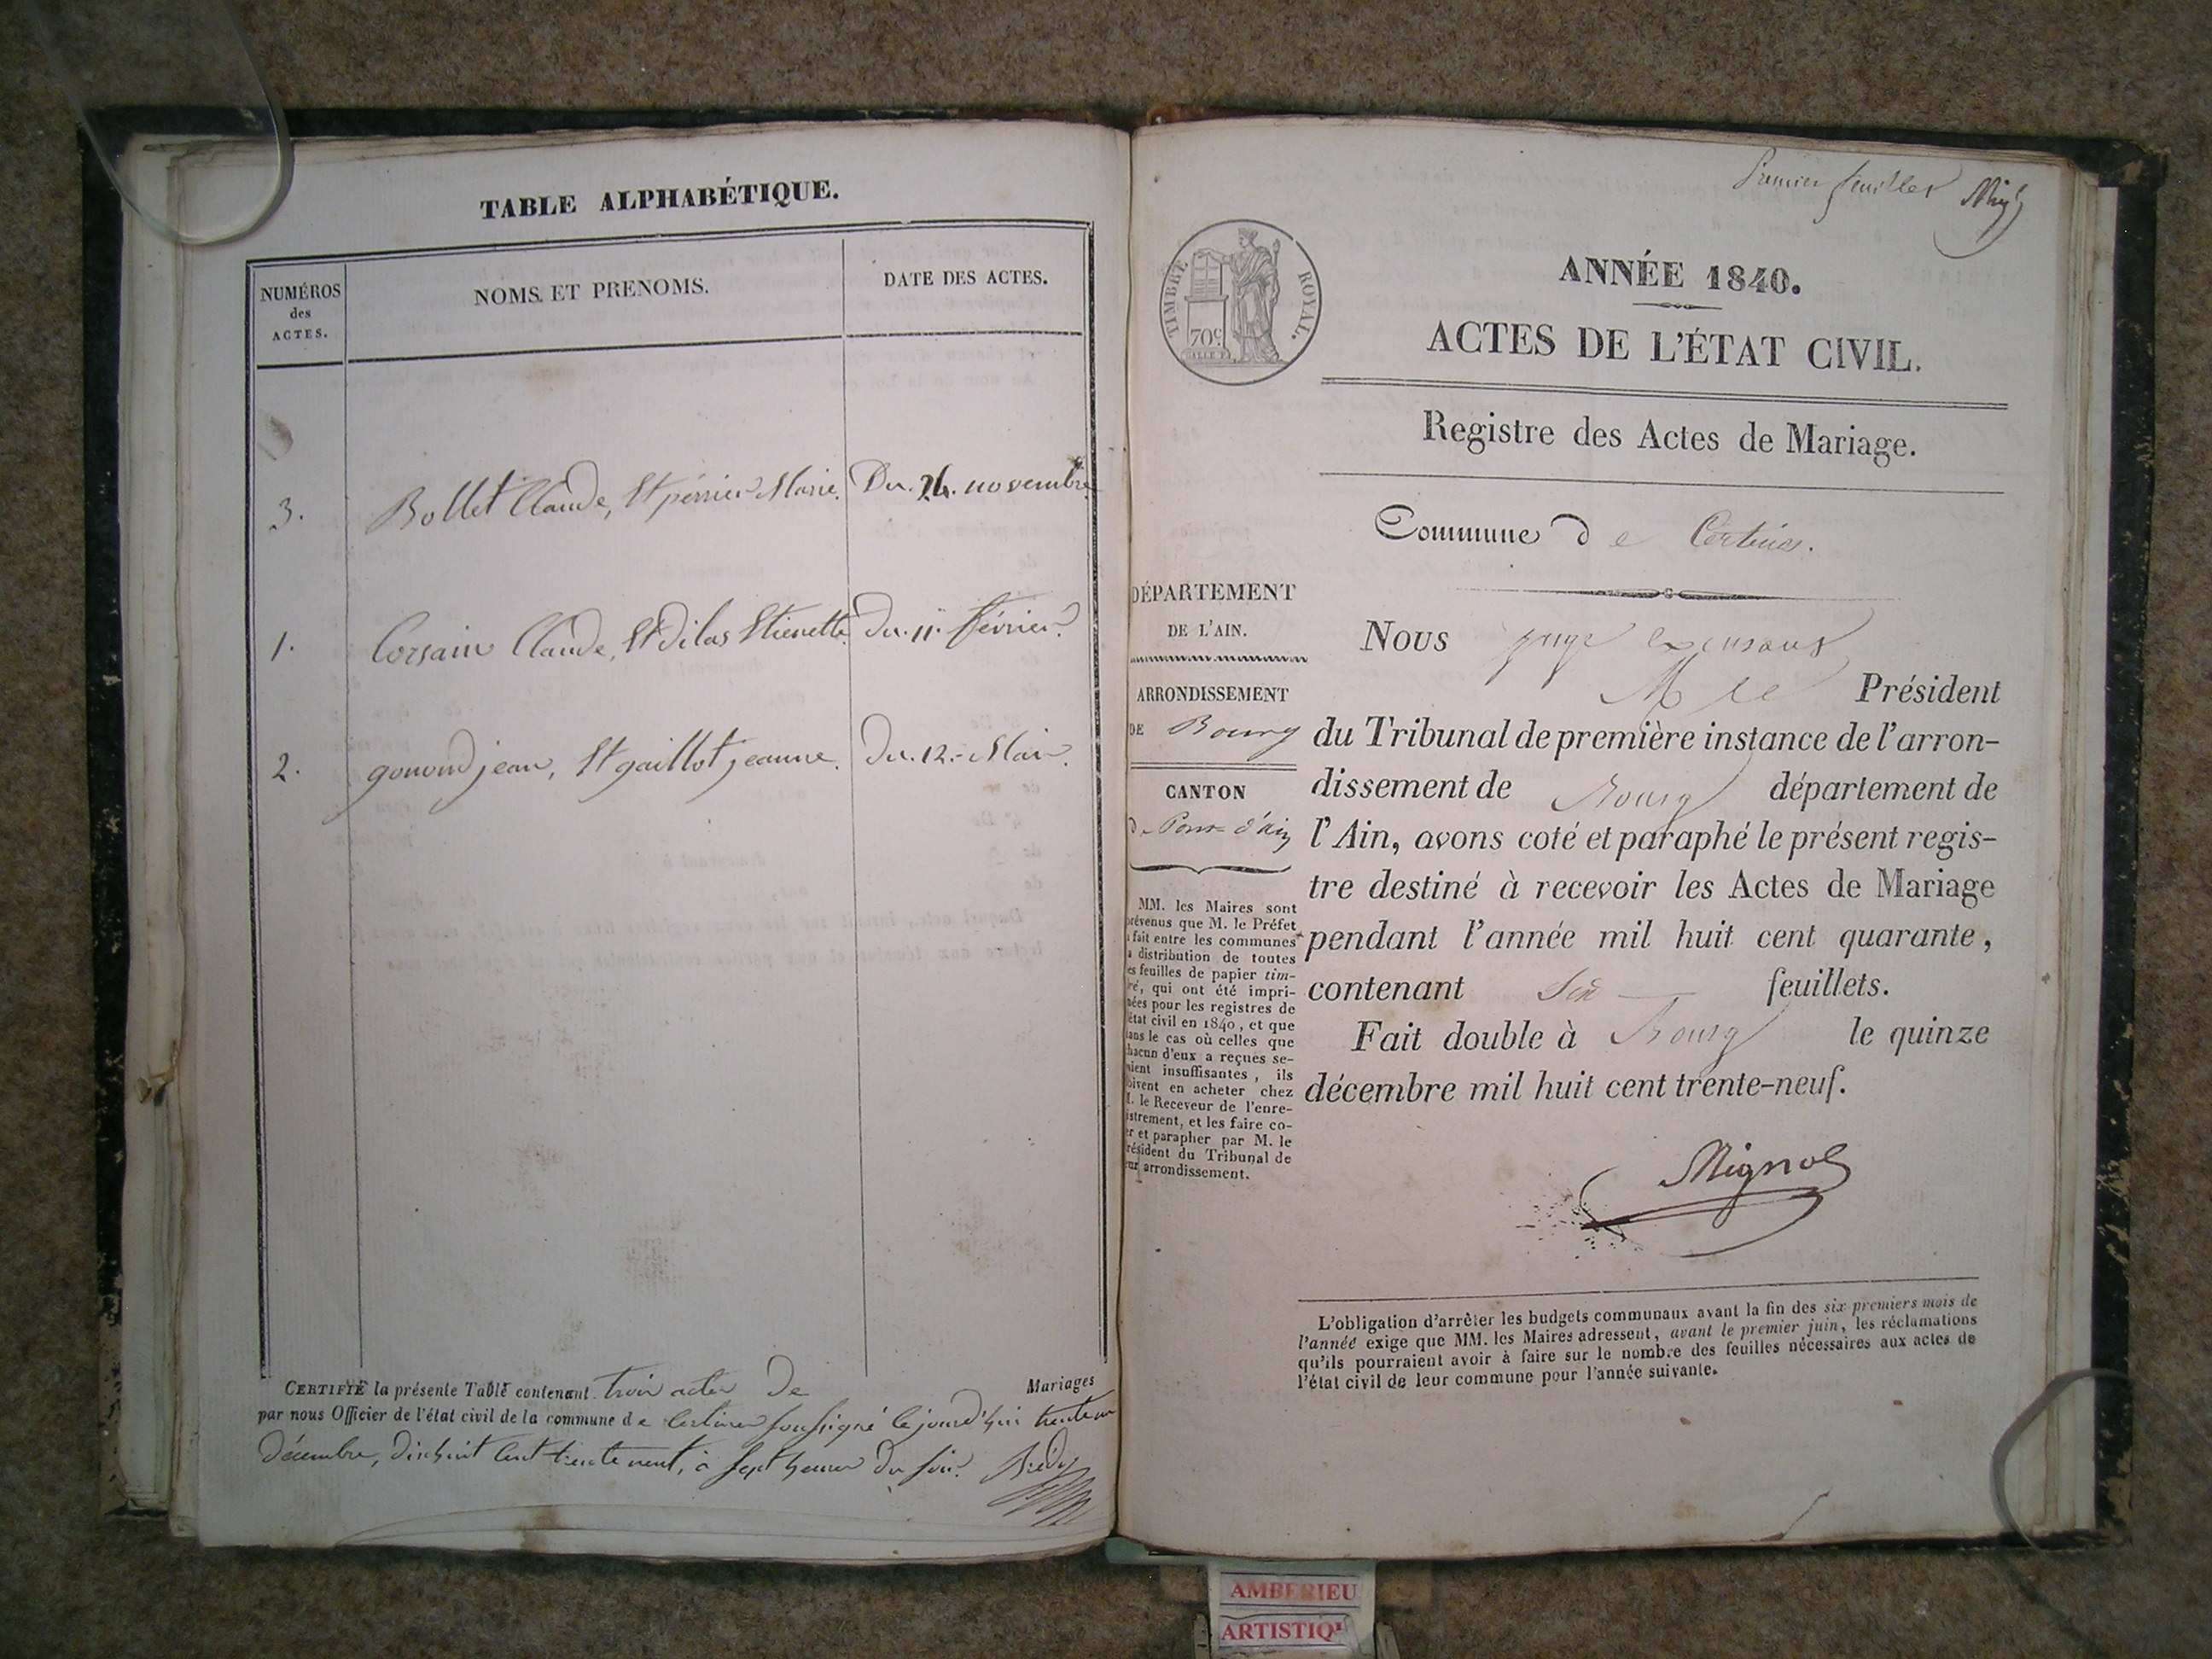 TABLE ALPHABÉTIQUE.
NUMÉROS
des
ACTES.
NOMS ET PRENOMS.
DATE DES ACTES.
3. Bollet Claude, Et perrier Marie. Du. 24. novembre
1. Corsain Claude, Et Dilas Etienette. Du. 11. février.
2. gonond jean, Et gaillot jeanne. Du. 12. Mai.
CERTIFIÉ la présente Table contenant trois actes De Mariages
par nous Officier de l'état civil de la commune de Certines soussigné le jourd'hui trente un
Décembre, dix huit cent trente neuf, à sept heures du soir.
Premier feuillet
TIMBRE ROYAL.
70c
ANNÉE 1840.
ACTES DE L'ÉTAT CIVIL.
Registre des Actes de Mariage.
Commune de Certines.
DÉPARTEMENT
DE L'AIN.
ARRONDISSEMENT
DE Bourg
CANTON
de Pont d'ain
MM. les Maires sont
prévenus que M. le Préfet
a fait entre les communes
la distribution de toutes
les feuilles de papier tim-
bré, qui ont été impri-
mées pour les registres de
l'état civil en 1840, et que
dans le cas où celles que
chacun d'eux a reçues se-
raient insuffisantes, ils
doivent en acheter chez
M. le Receveur de l'enre-
gistrement, et les faire co-
ter et parapher par M. le
Président du Tribunal de
leur arrondissement.
Nous juge
Président
du Tribunal de première instance de l'arron-
dissement de Bourg département de
l'Ain, avons coté et paraphé le présent regis-
tre destiné à recevoir les Actes de Mariage
pendant l'année mil huit cent quarante,
contenant Six feuillets.
Fait double à Bourg le quinze
décembre mil huit cent trente-neuf.
L'obligation d'arrêter les budgets communaux avant la fin des six premiers mois de
l'année exige que MM. les Maires adressent, avant le premier juin, les réclamations
qu'ils pourraient avoir à faire sur le nombre des feuilles nécessaires aux actes de
l'état civil de leur commune pour l'année suivante.
AMBERIEU
ARTISTIQ